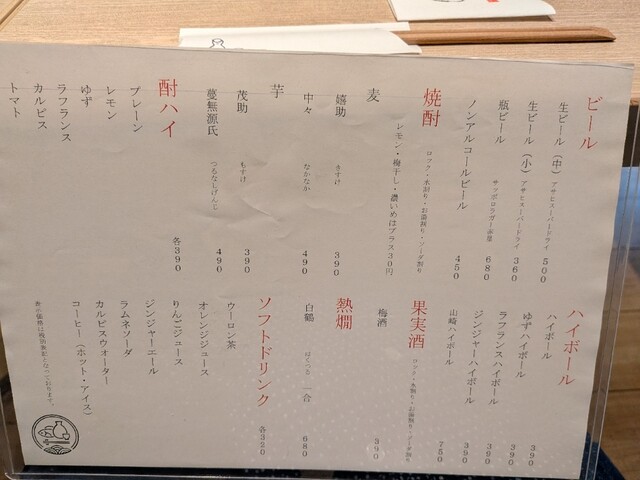 ビール
生ビール（中）アサヒスーパードライ ５００
生ビール（小）アサヒスーパードライ ３６０
瓶ビール サッポロラガー赤星 ６８０
ノンアルコールビール ４５０
焼酎 ロック・水割り・お湯割り・ソーダ割り
レモン・梅干し・濃いめはプラス３０円
麦
嬉助 きすけ ３９０
中々 なかなか ４９０
芋
茂助 もすけ ３９０
蔓無源氏 つるなしげんじ ４９０
酎ハイ 各３９０
プレーン
レモン
ゆず
ラフランス
カルピス
トマト
ハイボール
ハイボール ３９０
ゆずハイボール ３９０
ラフランスハイボール ３９０
ジンジャーハイボール ３９０
山崎ハイボール ７５０
果実酒 ロック・水割り・お湯割り・ソーダ割り
梅酒 ３９０
熱燗
白鶴 はくつる 一合 ６８０
ソフトドリンク 各３２０
ウーロン茶
オレンジジュース
りんごジュース
ジンジャーエール
ラムネソーダ
カルピスウオーター
コーヒー（ホット・アイス）
表示価格は税別表記となっております。